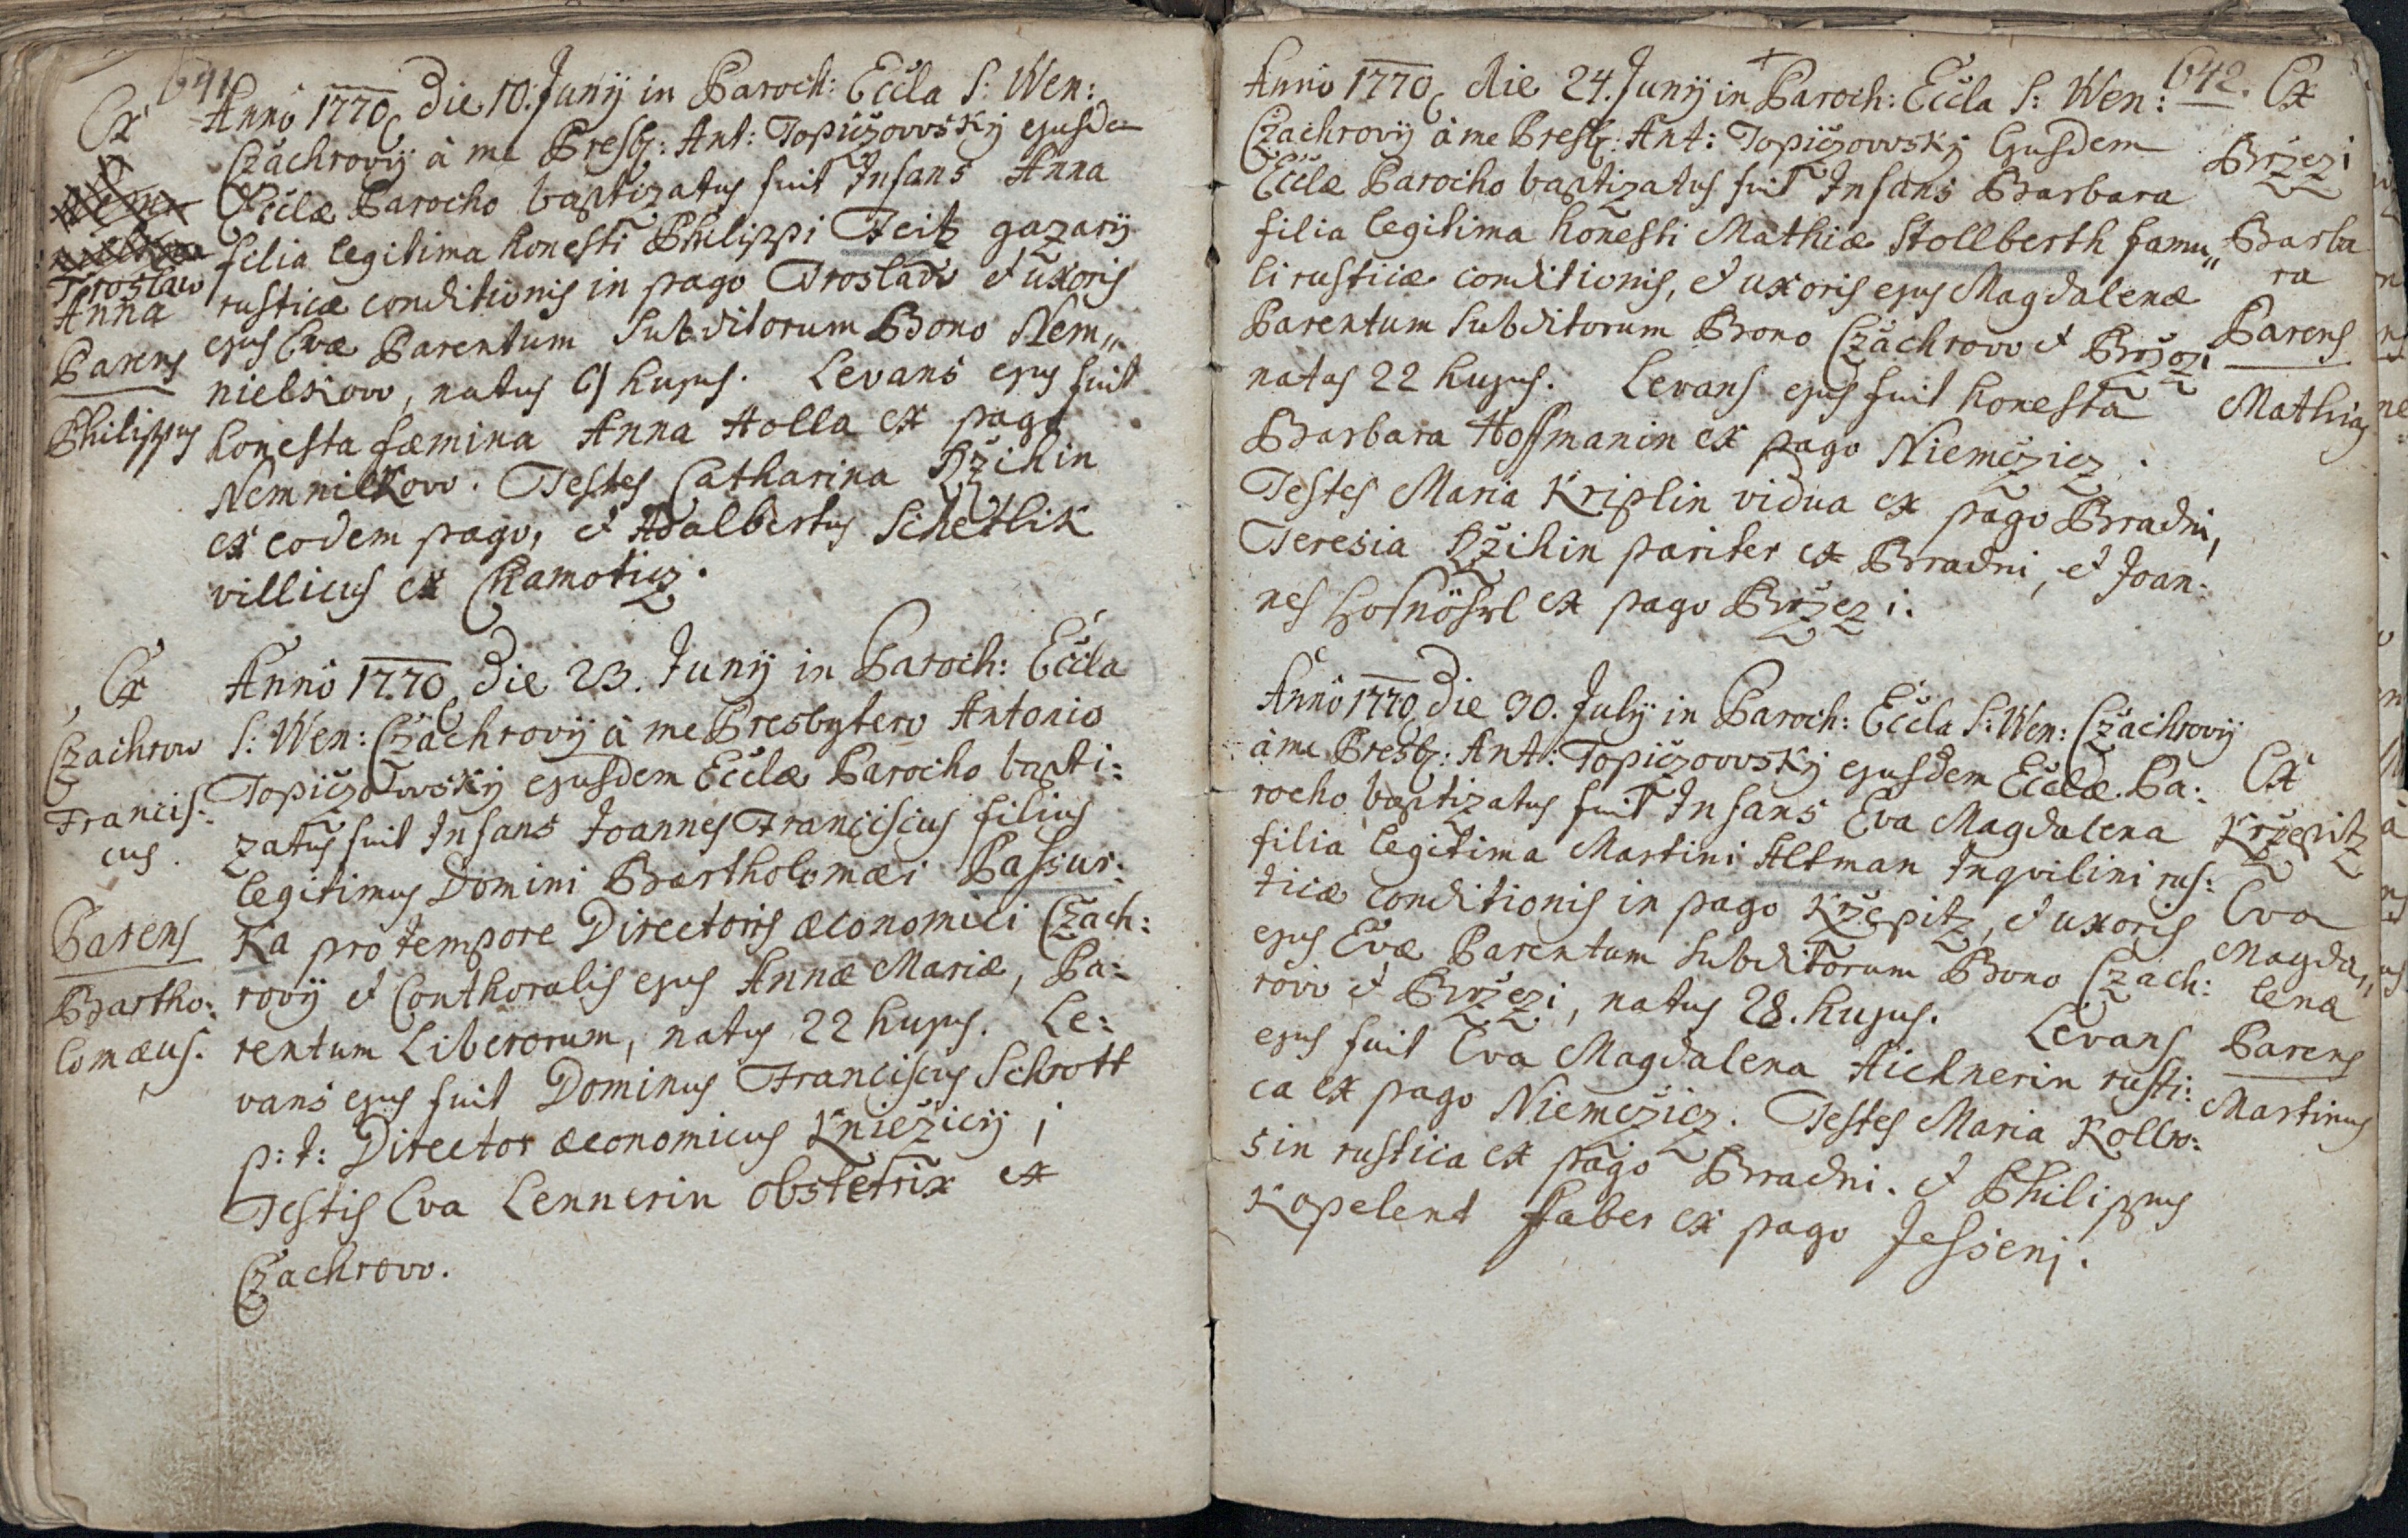 641.
Ex
Troslaw
Anna
Parens
Philippus
Anno 1770 die 10. Junij in Paroch: Eccla S: Wen:
Czachrovij à me Presb: Ant: Topiczovvskij ejusdem
Ecclæ Parocho baptizatus fuit Infans Anna
filia legitima honesti Philippi Teitz gazarij
rusticæ conditionis in pago Troslaw et uxoris
ejus Evæ Parentum Subditorum Bono Nem„
nielkow, natus 9 hujus. Levans ejus fuit
honesta fæmina Anna Holla ex pago
Nemnielkow. Testes Catharina Rzihin
ex eodem pago, et Adalbertus Schetlik
villicus ex Chamoticz.
Ex
Czachrow
Francis:
cus.
Parens
Bartho:
lomæus.
Anno 1770 die 23. Junij in Paroch: Eccla
S: Wen: Czachrovij à me Presbytero Antonio
Topiczovvskij ejusdem Ecclæ Parocho bapti:
zatus fuit Infans Joannes Franciscus filius
legitimus Domini Bartholomæi Passur:
ka pro tempore Directoris æconomici Czach:
rovij et Conthoralis ejus Annæ Mariæ, Pa:
rentum Liberorum, natus 22 hujus. Le:
vans ejus fuit Dominus Franciscus Schrott
p: t: Director æconomicus Kniezicij;
Testis Eva Lennerin obstetrix ex
Czachrow.
642.
Anno 1770 die 24. Junij in Paroch: Eccla S: Wen:
Czachrovij à me Presb: Ant: Topiczovvskij Ejusdem
Ecclæ Parocho baptizatus fuit Infans Barbara
filia legitima honesti Mathiæ Stollberth famu„
li rusticæ conditionis, et uxoris ejus Magdalenæ
Parentum Subditorum Bono Czachrow et Brzezi
natus 22 hujus. Levans ejus fuit honesta
Barbara Hoffmanin ex pago Niemczicz.
Testes Maria Kriplin vidua ex pago Bradni,
Teresia Rzihin pariter ex Bradni, et Joan:
nes ex pago Brzezi.
Ex
Brzezi
Barba
ra
Parens
Mathias
Anno 1770 die 30. Julij in Paroch: Eccla S: Wen: Czachrovij
à me Presb: Ant: Topiczovvskij ejusdem Ecclæ Pa:
rocho baptizatus fuit Infans Eva Magdalena
filia legitima Martini Altman Inqvilini rus:
ticæ conditionis in pago Krzepitz, et uxoris
ejus Evæ Parentum Subditorum Bono Czach:
row et Brzezi, natus 28. hujus. Levans
ejus fuit Eva Magdalena Aichnerin rusti:
ca ex pago Niemczicz. Testes Maria Kollro:
sin rustica ex pago Bradni. et Philippus
Kopelent Faber ex pago Jesseni.
Ex
Krzepitz
Eva
Magda„
lena
Parens
Martinus